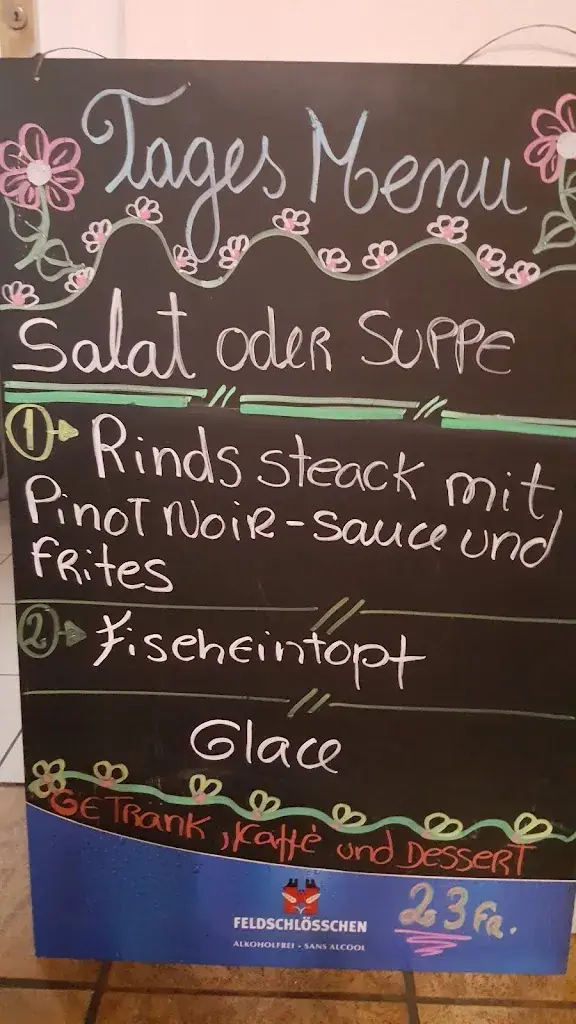 Tages Menu
Salat oder Suppe
1 Rinds steack mit
Pinot Noir-Sauce und
Frites
2 Fischeintopf
Glace
Getränk, Kaffè und Dessert
FELDSCHLÖSSCHEN
ALKOHOLFREI - SANS ALCOOL
23 Fr.